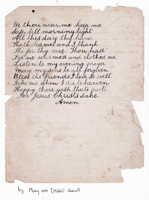 Be thou near me keep me
safe till morning light
All this day thy hand
Hath led me and I thank
Thee for thy care. Thou hast
me warmed and clothed me
Listen to my evening prayer
May my sins be all forgiven
Bless the friends I love so well
Take me when I die to heaven
Happy there with thee to dwell
For Jesus Christs Sake
Amen
by Mary Ann